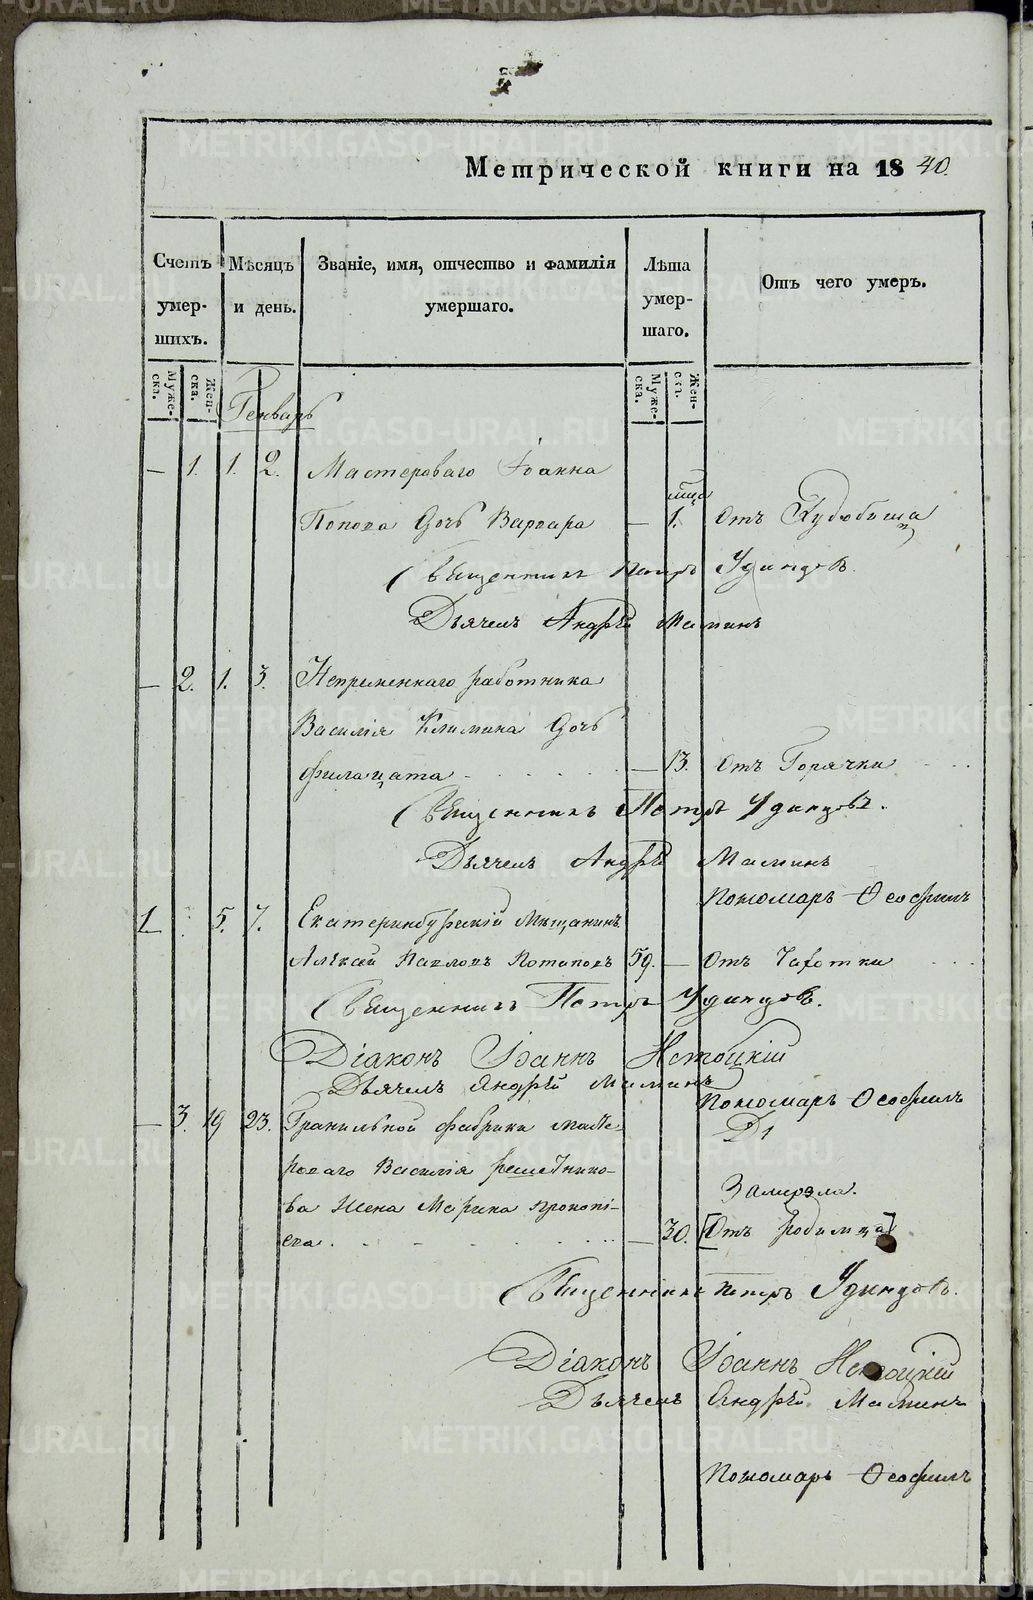 Метрической книги на 1840.
Счетъ умер- шихъ.
Мѣсяцъ и день.
Званіе, имя, отчество и фамилія умершаго.
Лѣта умер- шаго.
Отъ чего умеръ.
Муже- ска.
Жен- ска.
Муже- ска.
Жен- ска.
Генварь
— 1. 1. 2. Мастероваго Іоанна
Попова Дочь Варвара — 1. мца Отъ
Священникъ Петръ Удинцовъ.
Дьячекъ Андрѣй Маминъ
— 2. 1. 3. Непременнаго работника
Василія Климина Дочь
Филацата — 13. Отъ Горячки
Священникъ Петръ Удинцовъ.
Дьячекъ Андрѣй Маминъ
Пономарь Ѳеофилъ
1 5. 7. Екатеринбургскій Мѣщанинъ
Алѣксѣй Павловъ Потаповъ 59. — Отъ Чахотки
Священникъ Петръ Удинцовъ.
Діаконъ Іоаннъ
Дьячекъ Андрѣй Маминъ
Пономарь Ѳеофилъ
— 3. 19 23. Гранильной фабрики масте-
роваго Василія решетнико-
ва Жена Марина прокопі-
ева — 30. [Отъ родимца]
Священникъ Петръ Удинцовъ.
Діаконъ Іоаннъ
Дьячекъ Андрѣй Маминъ
Пономарь Ѳеофилъ
METRIKI.GASO-URAL.RU